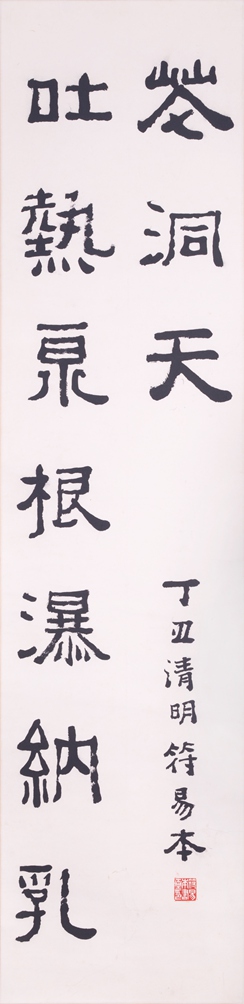 吐熱泉根瀑納乳
花洞天
丁丑清明符易本